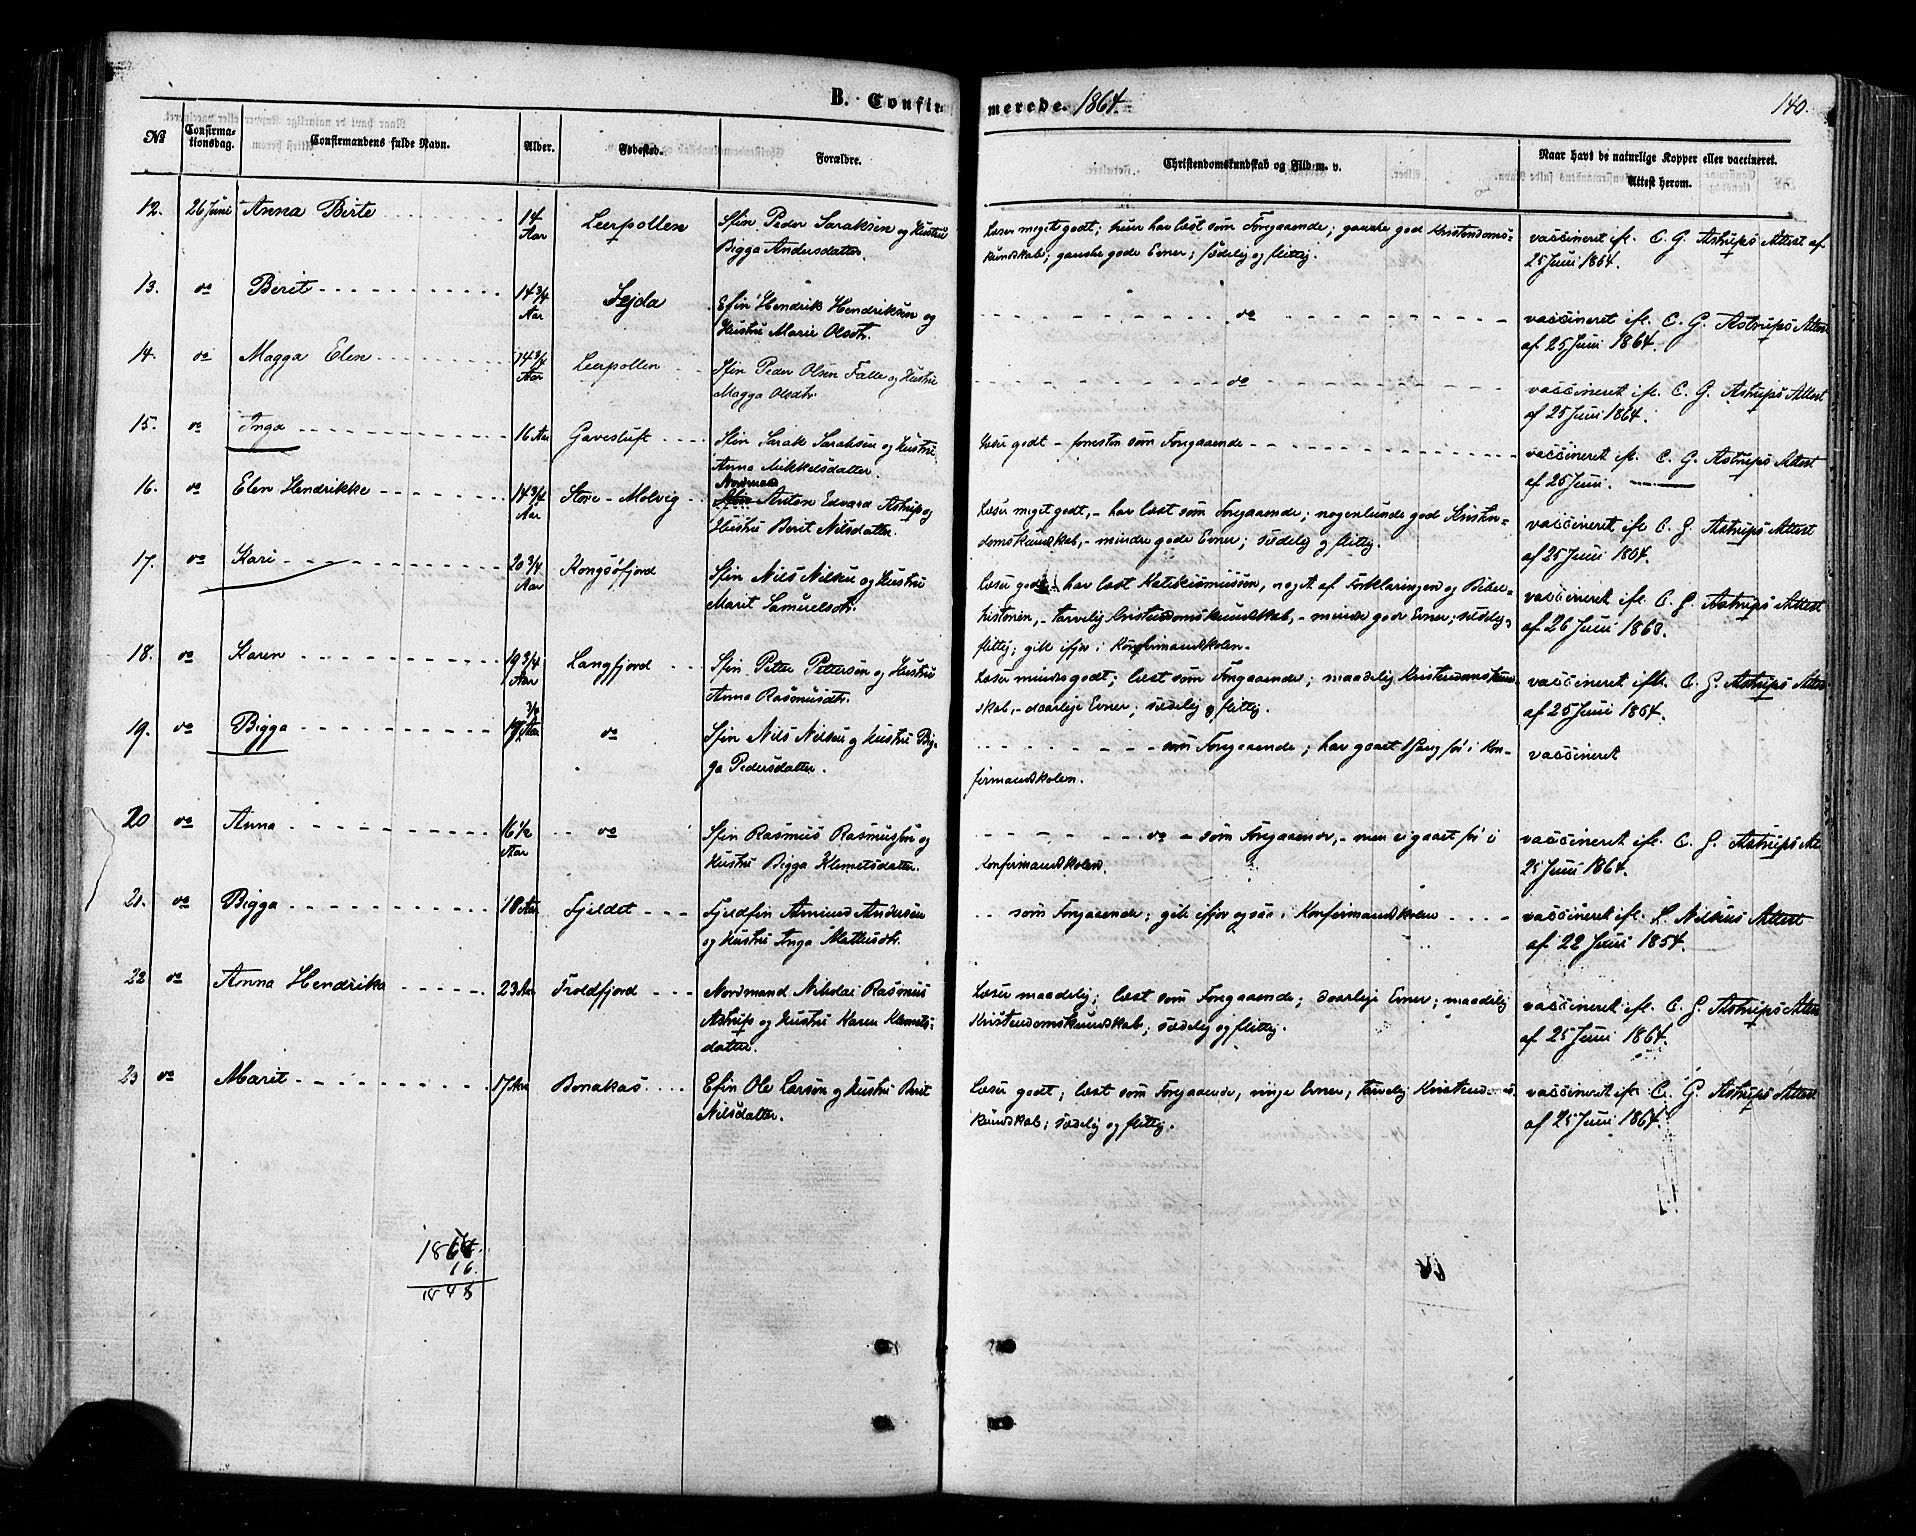 B. Confirmerede. 1864. 140.
№ Confirmationsdag. Confirmandens fulde Navn. Alder. Fødested. Forældre. Christendomskundskab og Flid m. v. Naar havt de naturlige Kopper eller vaccineret. Attest herom.
12. 26 Juni Anna Birte 14 Aar Leerpollen Sfin Peder Saraksen og Hustru
Bigga Andersdatter.
Læser meget godt; hun har læst som Foregaaende; ganske god Kristendoms-
kundskab; ganske gode Evner; sædelig og flittig.
vaccineret ifl. C. G. Astrups Attest af
25 Juni 1864.
13. do Berit 14 3/4 Aar Sejda Efin Hendrik Hendriksen og
Hustru Marie Olsdtr.
do
vaccineret ifl. C. G. Astrups Attest
af 25 Juni 1864.
14. do Magga Elen 14 3/4 Aar Leerpollen Sfin Peder Olsen Falle og Hustru
Magga Olsdtr.
do
vaccineret ifl. C. G. Astrups Attest
af 25 Juni 1864.
15. do Inga 16 Aar Gavesluft Sfin Sarak Saraksen og Hustru
Anna Mikkelsdatter.
Læser godt - forresten som Foregaaende
vaccineret ifl. C. G. Astrups Attest
af 25 Juni.
16. do Elen Hendrikke 14 3/4 Aar Store-Molvig Nordmand
Anton Edvard Astrup og
Hustru Berit Nilsdatter.
Læser meget godt, - har læst som Foregaaende; nogenlunde god Kristen-
domskundskab, - mindre gode Evner; sædelig og flittig.
vaccineret ifl. C. G. Astrups Attest
af 25 Juni 1864.
17. do Kari 20 3/4 Aar Kongsøfjord Sfin Nils Nilsen og Hustru
Marit Samuelsdtr.
Læser godt - har læst Katekismussen, noget af Forklaringen og Bibel-
historien, - tarvelig Kristendomskundskab, - mindre gode Evner; sædelig,
flittig; gik ifjor i Konfirmandskolen.
vaccineret ifl. C. G. Astrups Attest
af 26 Juni 1863.
18. do Karen 19 3/4 Aar Langfjord Sfin Petter Pettersen og Hustru
Anna Rasmusdtr.
Læser mindre godt; læst som Foregaaende; maadelig Kristendomskund-
skab, - daarlige Evner; sædelig og flittig.
vaccineret ifl. C. G. Astrups Attest
af 25 Juni 1864.
19. do Bigga Aar do Sfin Nils Nilsen og Hustru Big-
ga Pedersdatter.
som Foregaaende; har gaaet 1 Gang før i Kon-
firmandskolen.
vaccineret
20 do Anna 16 1/2 Aar do Sfin Rasmus Rasmussen og
Hustru Bigga Klemetsdatter.
do - som Foregaaende, - men ei gaaet før i
Konfirmandskolen.
vaccineret ifl. C. G. Astrups At.
25 Juni 1864.
21. do Bigga 18 Aar Fjeldet Fjeldfin Amund Andersen
og Hustru Inga Mathisdtr.
som Foregaaende; gik ifjor ogsaa i Konfirmandskolen
vaccineret ifl. L. Nilsens Attest
af 22 Juni 1854.
22 do Anna Hendrika 23 Aar Troldfjord Nordmand Nikolai Rasmus
Astrup og Hustru Karen Klemets-
datter.
Læser maadelig; læst som Foregaaende; daarlige Evner; maadelig
Kristendomskundskab; sædelig og flittig.
vaccineret ifl. C. G. Astrups Attest
af 25 Juni 1864.
23 do Marit 17 Aar Bonakas Efin Ole Larsen og Hustru Berit
Nilsdatter.
Læser godt; læst som Foregaaende, ringe Evner; tarvelig Kristendoms-
kundskab; sædelig og flittig.
vaccineret ifl. C. G. Astrups Attest
af 25 Juni 1864.
1864.
16.
1848